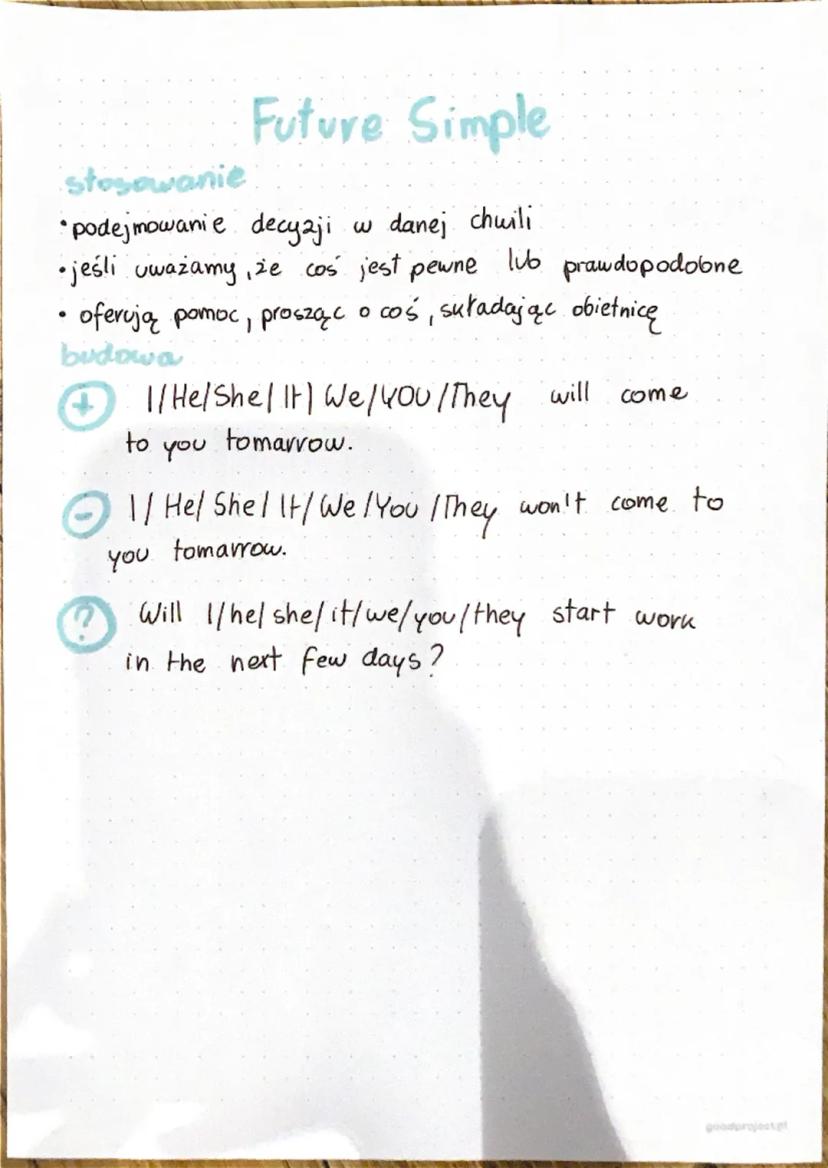 Future Simple
stosowanie
• podejmowanie decyzji w danej chwili
• jeśli uważamy, że coś jest pewne lub prawdopodobne
• oferują pomoc, prosząc o coś, składając obietnicę
budowa
+ I/He/She/It/We/YOU/They will come
to you tomarrow.
- I/He/She/It/We/You/They won't come to
you tomarrow.
? Will I/he/she/it/we/you/they start work
in the next few days?
goodproject.pl